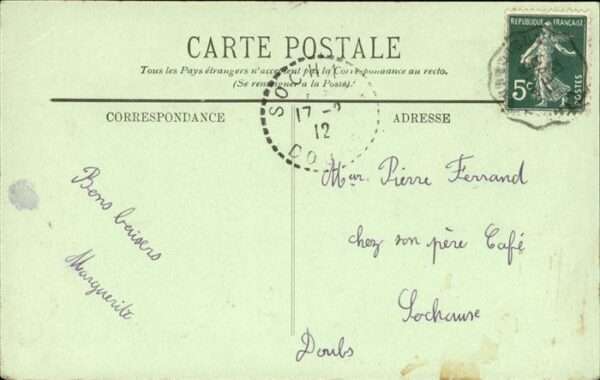 CARTE POSTALE
Tous les Pays étrangers n'acceptent pas la Correspondance au recto.
(Se renseigner à la Poste).
RÉPUBLIQUE FRANÇAISE
5c
POSTES
SOCH
17 -
12
DOU
CORRESPONDANCE
ADRESSE
Bons baisers
Marguerite
Pierre Ferrand
chez son père Café
Sochause
Doubs